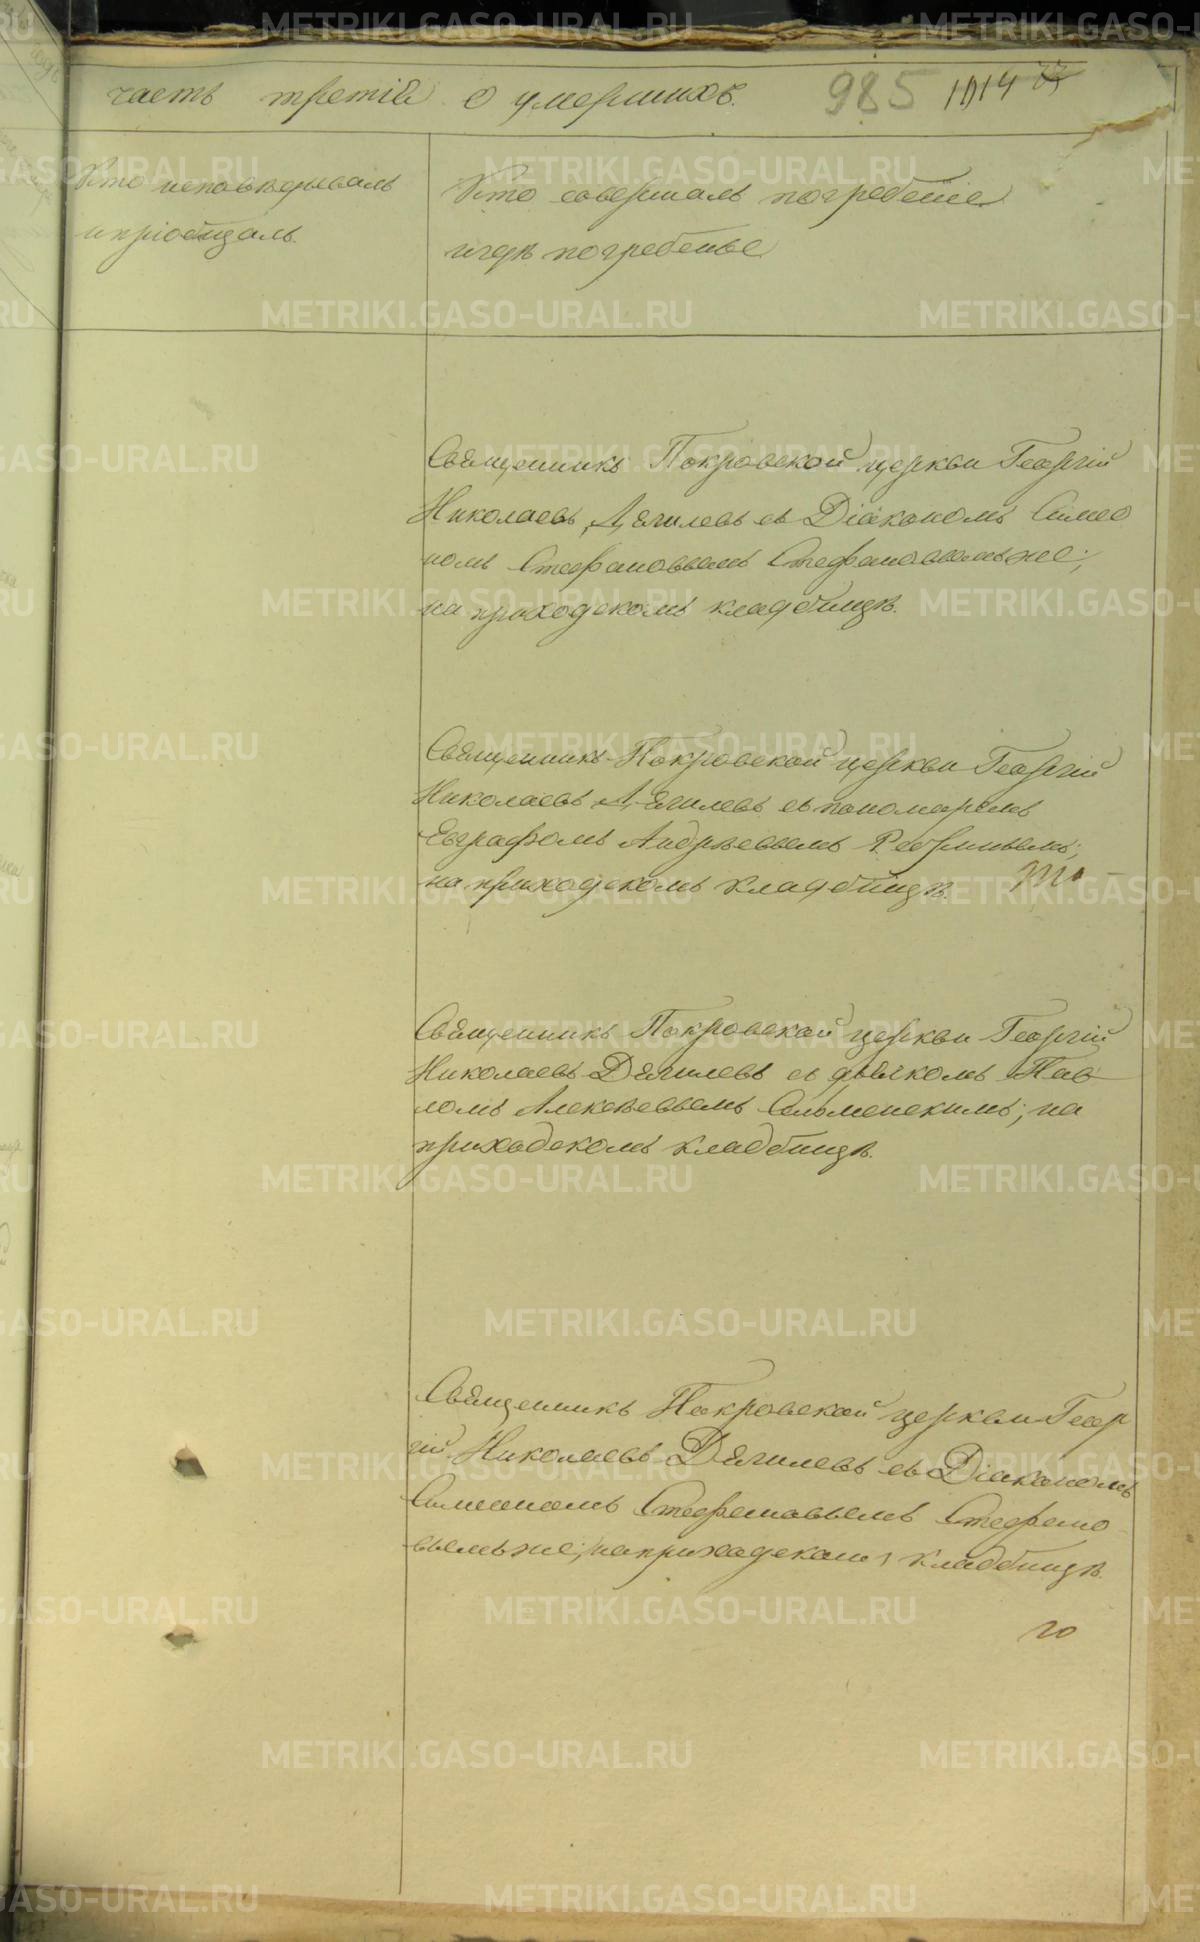 часть третія о умершихъ. 985 1014
Кто исповѣдывалъ
и пріобщалъ.
Кто совершалъ погребеніе
и гдѣ погребены
Священникъ Покровской церкви Георгій
Николаевъ Дягилевъ съ Діакономъ Симео
номъ Стефановымъ Стефановымъ же;
на приходскомъ кладбищѣ.
Священникъ Покровской церкви Георгій
Николаевъ Дягилевъ съ пономаремъ
Евграфомъ Андреевымъ
на приходскомъ кладбищѣ.
Священникъ Покровской церкви Георгій
Николаевъ Дягилевъ съ дьякомъ Пав
ломъ Алексѣевымъ на
приходскомъ кладбищѣ.
Священникъ Покровской церкви Геор
гій Николаевъ Дягилевъ съ Діакономъ
Симеономъ Стефановымъ Стефано
вымъ же; на приходскомъ кладбищѣ.
METRIKI.GASO-URAL.RU